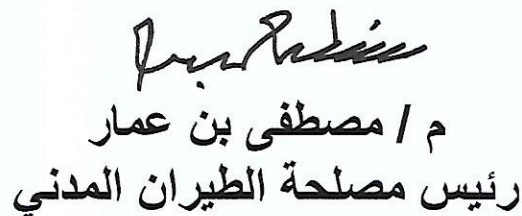 م / مصطفى بن عمار
رئيس مصلحة الطيران المدني